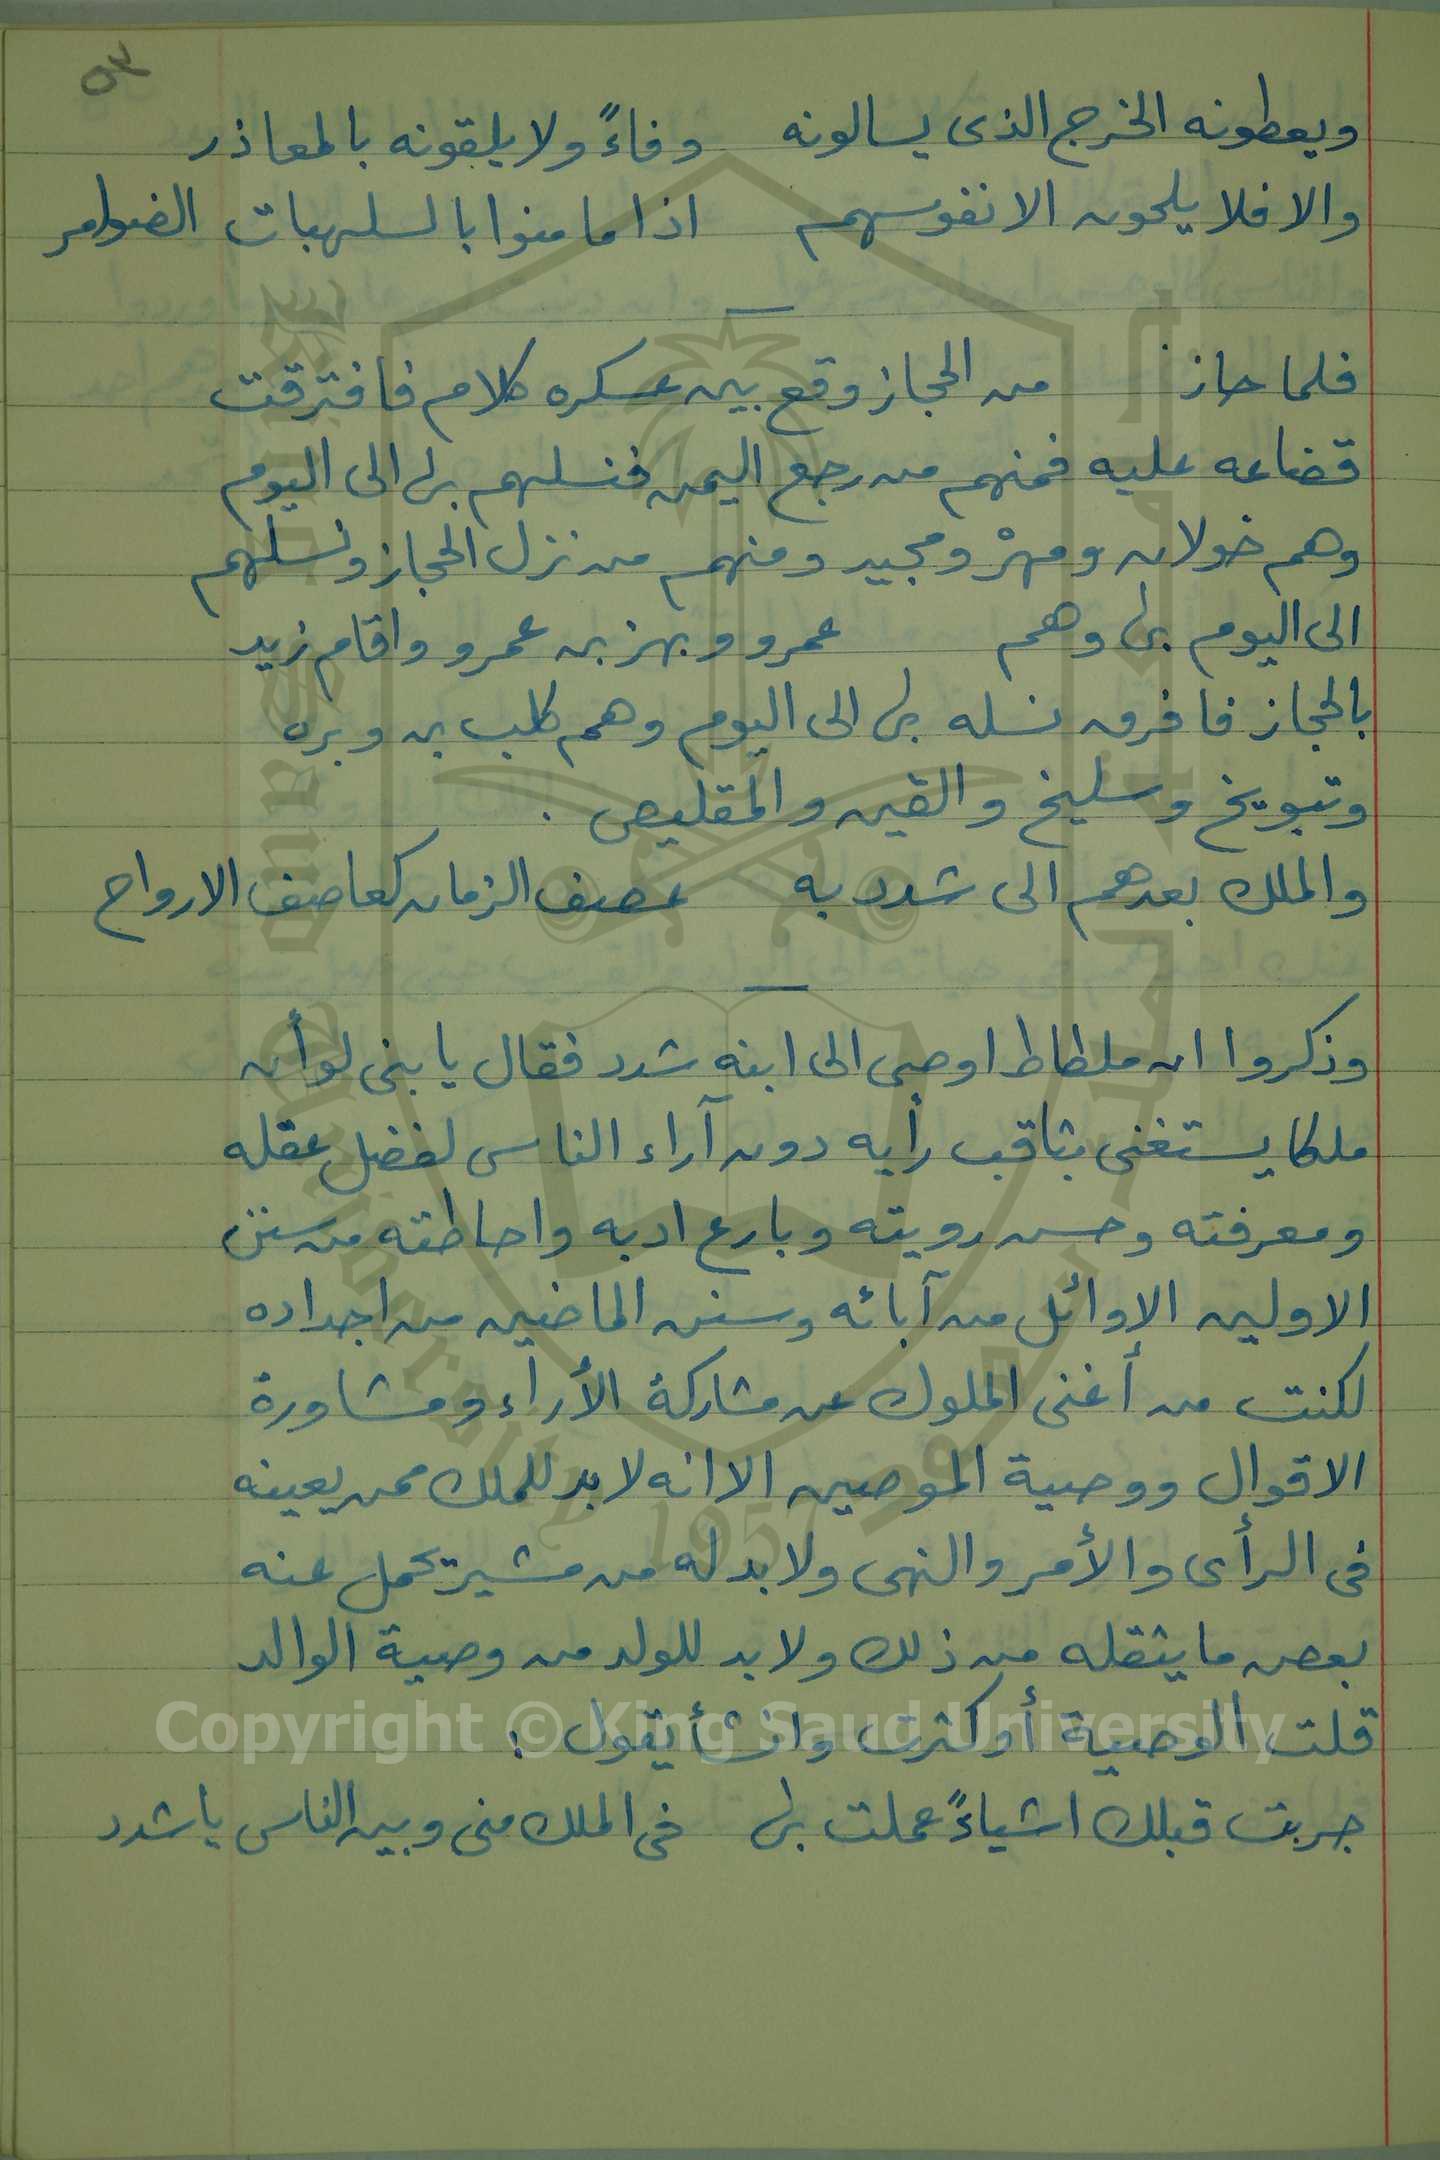 ٥٣
ويعطونه الخرج الذى يسالونه وفاءً ولا يلقونه بالمعاذر
والا فلا يلحون الا نفوسهم اذا ما منوا بالسلهبات الضوامر
فلما حاز من الحجاز وقع بين عسكره كلام فافترقت
قضاعه عليه فمنهم من رجع اليمن فنسلهم بها الى اليوم
وهم خولان ومهرْ ومجيد ومنهم من نزل الحجاز ونسلهم
الى اليوم بها وهم عمرو وبهز بن عمرو واقام زيد
بالحجاز فافرق نسله بها الى اليوم وهم كلب بن وبره
وتبويخ وسليخ والقين والمقليص .
والملك بعدهم الى شدد به عصف الزمان كعاصف الارواح
وذكروا ان ملطاط اوصى الى ابنه شدد فقال يا بنى لو أن
ملكا يستغنى بثاقب رأيه دون آراء الناس لفضل عقله
ومعرفته وحسن رويته وبارع ادبه واحاطته من سنن
الاولين الاوائل من آبائه وسنن الماضين من اجداده
لكنت من أغنى الملوك عن مشاركة الأراء ومشاورة
الاقوال ووصية الموصين الا انه لا بد للملك ممن يعينه
فى الرأى والأمر والنهى ولا بد له من مشير تحمل عنه
بعض ما يثقله من ذلك ولا بد للولد من وصية الوالد
قلت الوصية أو كثرت وانشأ يقول :
جربت قبلك اشياءً عملت بها فى الملك منى وبين الناس يا شدد
Copyright © King Saud University
King Saud University
1957